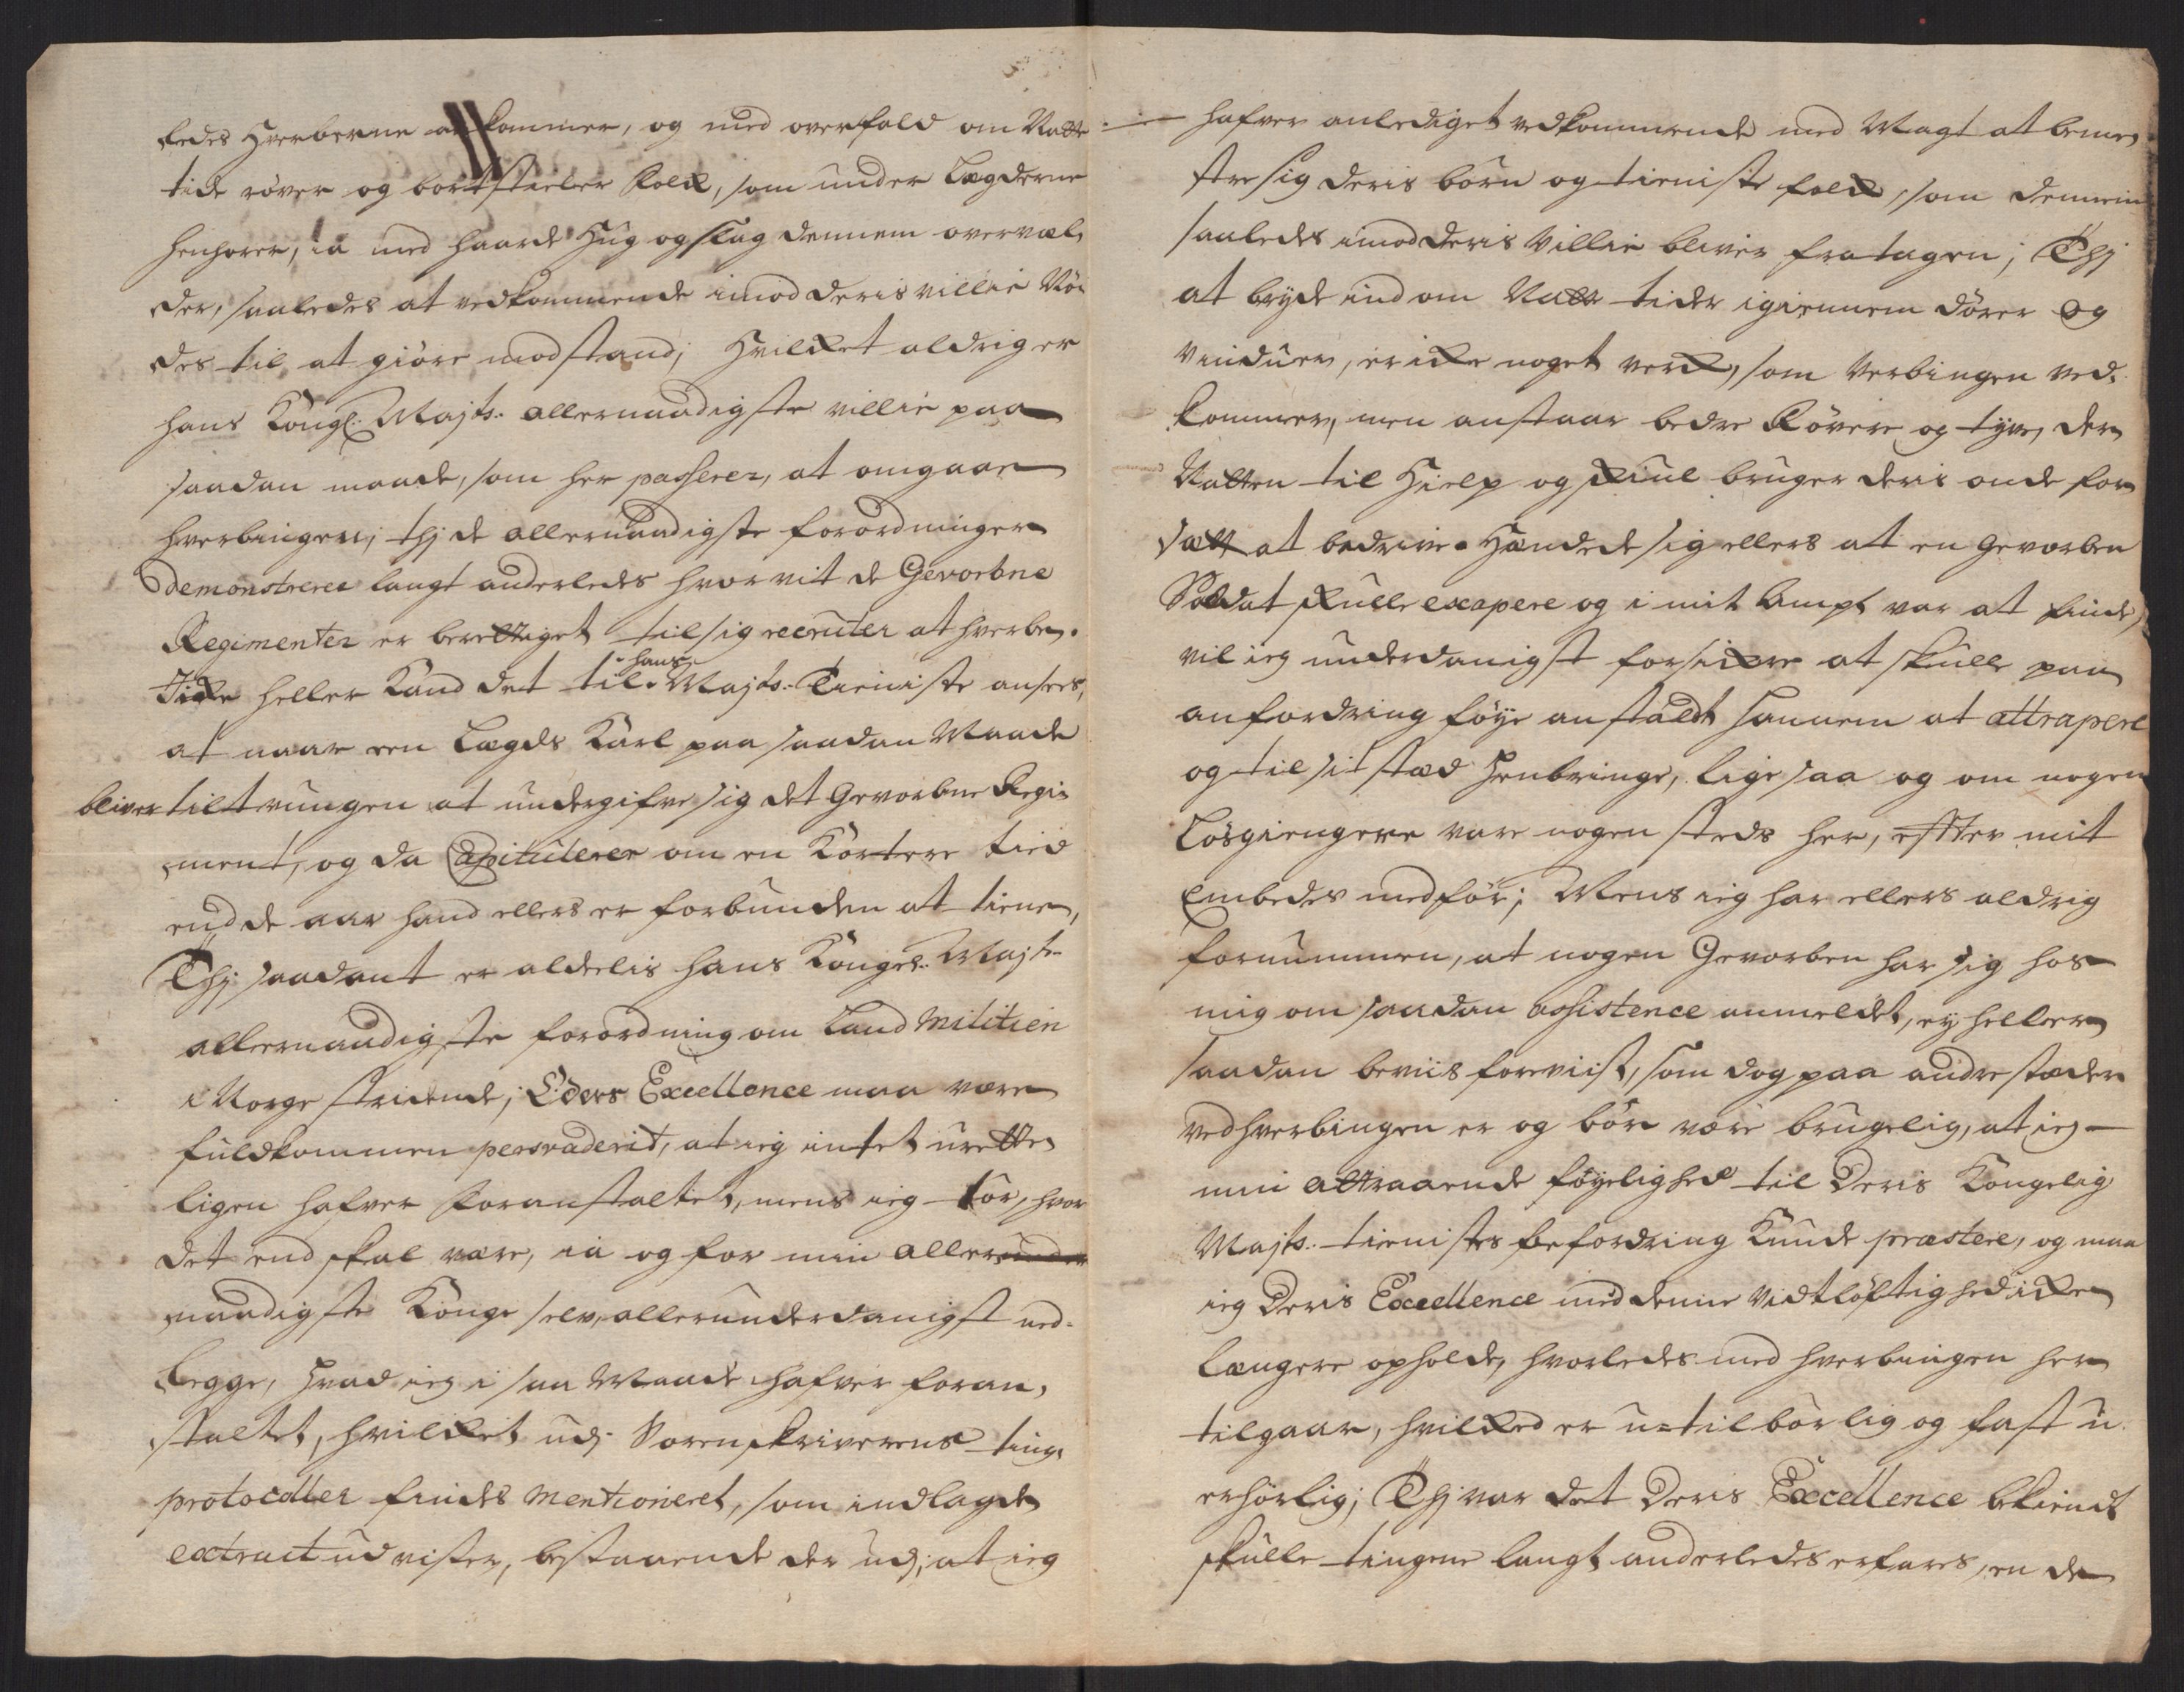 ledes Hverberne ankommer, og med overfald om Natte
tide röver og bortstieler Folck, som under Lægderne
henhörer, ia med haarde Hug og slag dennem overvæl¬
der, saaledes at vedkommende imod deris villie Nö¬
des til at giöre modstand; Hvilcket aldrig er
hans Kongl: Majts: allernaadigste villie paa
saadan maade, som her passerer, at omgaaes
hverbingen; thj de allernaadigste forordninger
demonstrerer langt anderledes hvorvit de Gevorbne
Regimenter er berettiget til sig recruter at hverbe.
Icke heller Kand det til hans Majts: Tieniste ansees,
at naar een Lægds Karl paa saadan Maade
bliver tiltvungen at undergifve sig det Gevorbne Regi¬
ment, og da Capitulerer om en Kortere tied
end de aar hand ellers er forbunden at tiene,
Thj saadant er aldelis hans Kongel: Majts
allernaadigste forordning om Land Militien
i Norge stridende; Eders Excellence maa være
fuldkommen persvaderit, at ieg intet urette¬
ligen hafver foranstaltet, mens ieg tör, hvor
det end skal være, ia og for min aller
naadigste Konge selv, allerunderdanigst ned¬
legge, hvad ieg i saa Maade hafver foran¬
staltet, hvilcket udj Sorenskriverens ting¬
protocoller findes mentioneret, som indlagde
extract udviser, bestaaende der udj, at ieg
hafver anlediget vedkommende med Magt at beme¬
stre sig deris börn og tieniste folck, som dennem
saaledes imod deris Villie bliver fratagen; Thj
at bryde ind om Natte tider igiennem dörer og
vinduer, er icke noget verck, som Verbingen ved¬
kommer, men anstaar bedre Rövere og tyve, der
Natten til Hielp og skiul bruger deris onde for
sætt at bedrive. Hændede sig ellers at en Gevorben
Soldat skulle exapere og i mit Ampt var at finde,
vil ieg underdanigst forsickre at skulle paa
anfordring föye anstaldt hannem at attrapere
og til sit stæd henbringe, lige saa og om nogen
Lösgiengere vare nogen steds her, effter mit
Embedes medför; Mens ieg har ellers aldrig
fornummen, at nogen Gevorben har sig hos
mig om saadan assistence anmeldet, ey heller
saadan beviis foreviist, som dog paa andre stæder
ved hverbingen er og bör være brugelig, at ieg
min attraaende föyelighed til Deris Kongelig
Majts: tienistes befordring Kunde præstere, og maa
ieg Deris Excellence med denne Vidtlöftighed icke
længere opholde, hvorledes med hverbingen her
tilgaar, hvilcked er u=tilbörlig og fast u
erhörlig; Thj var det Deris Excellence bekiendt
skulle tingene langt anderledes erfares, en de